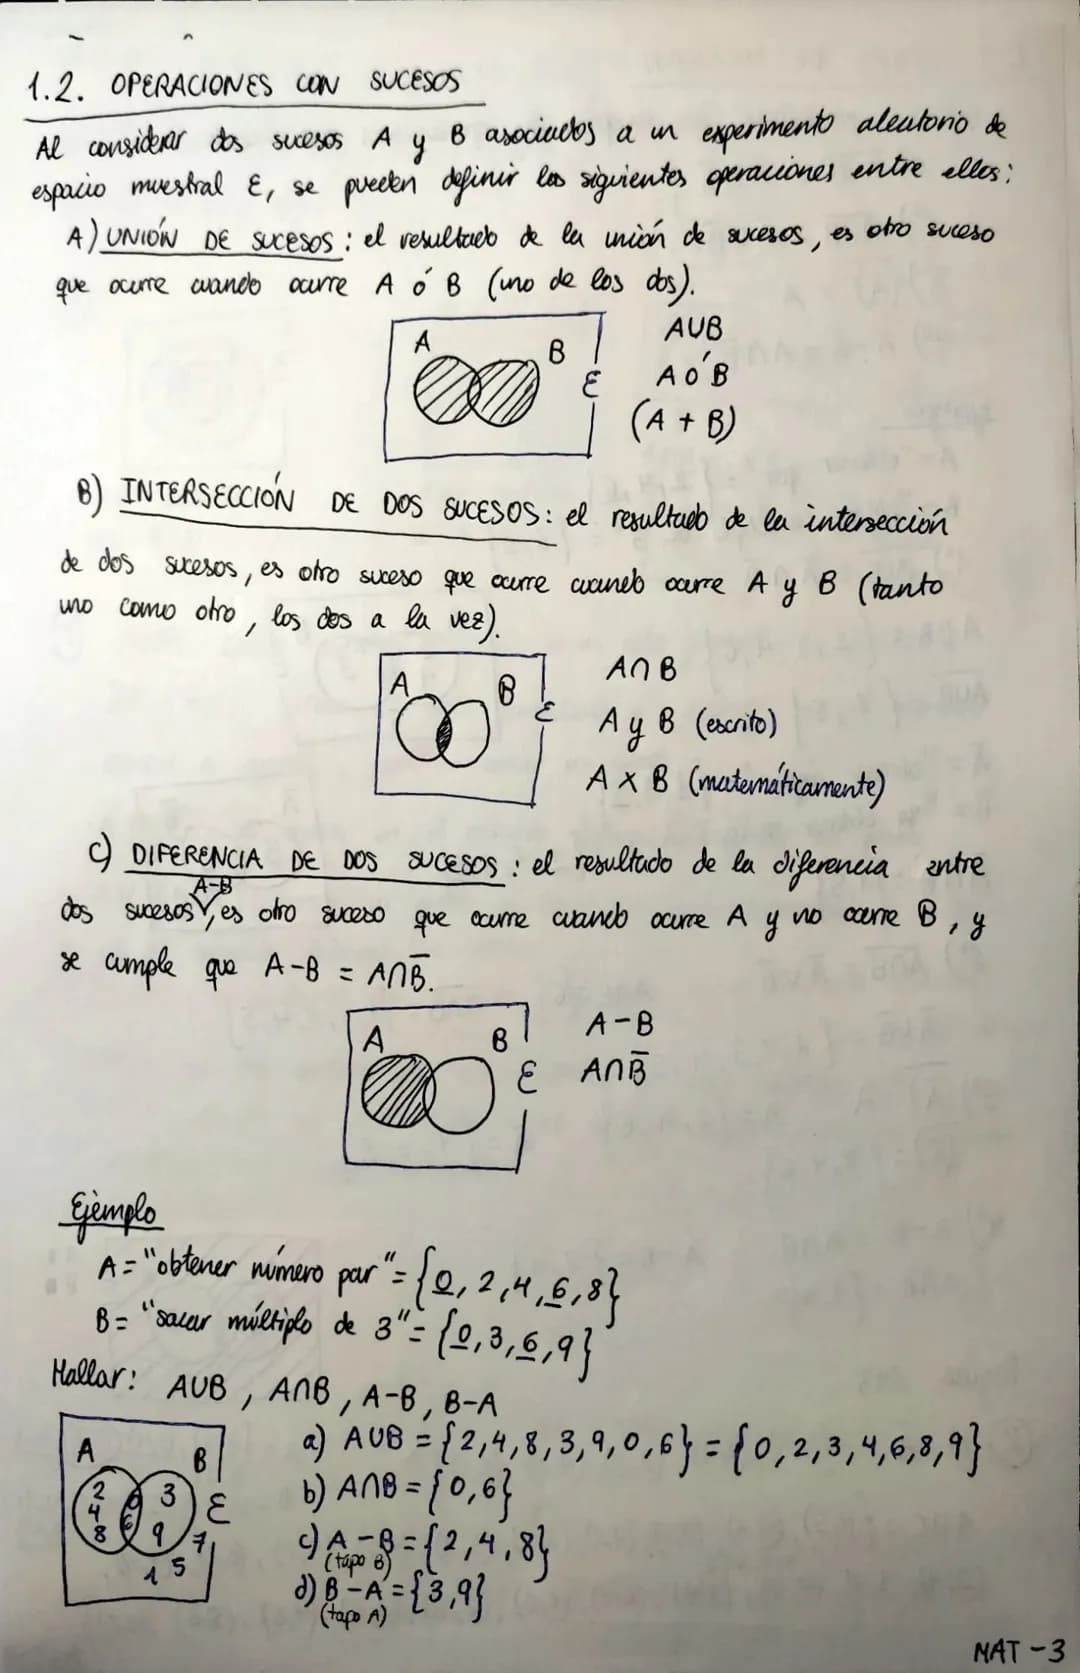 1.2. OPERACIONES CON SUCESOS
Al considerar dos sucesos A y B asociados a un experimento aleatorio de
espacio muestral E, se pueden definir las siguientes operaciones entre ellos:
A) UNIÓN DE SUCESOS: el resultado de la unión de sucesos, es otro suceso
que ocurre cuando ocurre A ó B (uno de los dos).
A B E
AUB
A Ó B
(A + B)
B) INTERSECCIÓN DE DOS SUCESOS: el resultado de la intersección
de dos sucesos, es otro suceso que ocurre cuando ocurre A y B (tanto
uno como otro, los dos a la vez).
A B E
A∩B
A y B (escrito)
A x B (matemáticamente)
C) DIFERENCIA DE DOS SUCESOS: el resultado de la diferencia entre
A-B
dos sucesos, es otro suceso que ocurre cuando ocurre A y no ocurre B, y
se cumple que A-B = A∩B̅.
A B E
A-B
A∩B̅
Ejemplo
A = "obtener número par" = {0, 2, 4, 6, 8}
B = "sacar múltiplo de 3" = {0, 3, 6, 9}
Hallar: AUB, A∩B, A-B, B-A
A B E
2 4 8 0 6 3 9 7 1 5
a) AUB = {2,4,8,3,9,0,6} = {0,2,3,4,6,8,9}
b) A∩B = {0,6}
c) A-B = {2,4,8}
(tapo B)
d) B-A = {3,9}
(tapo A)
MAT-3